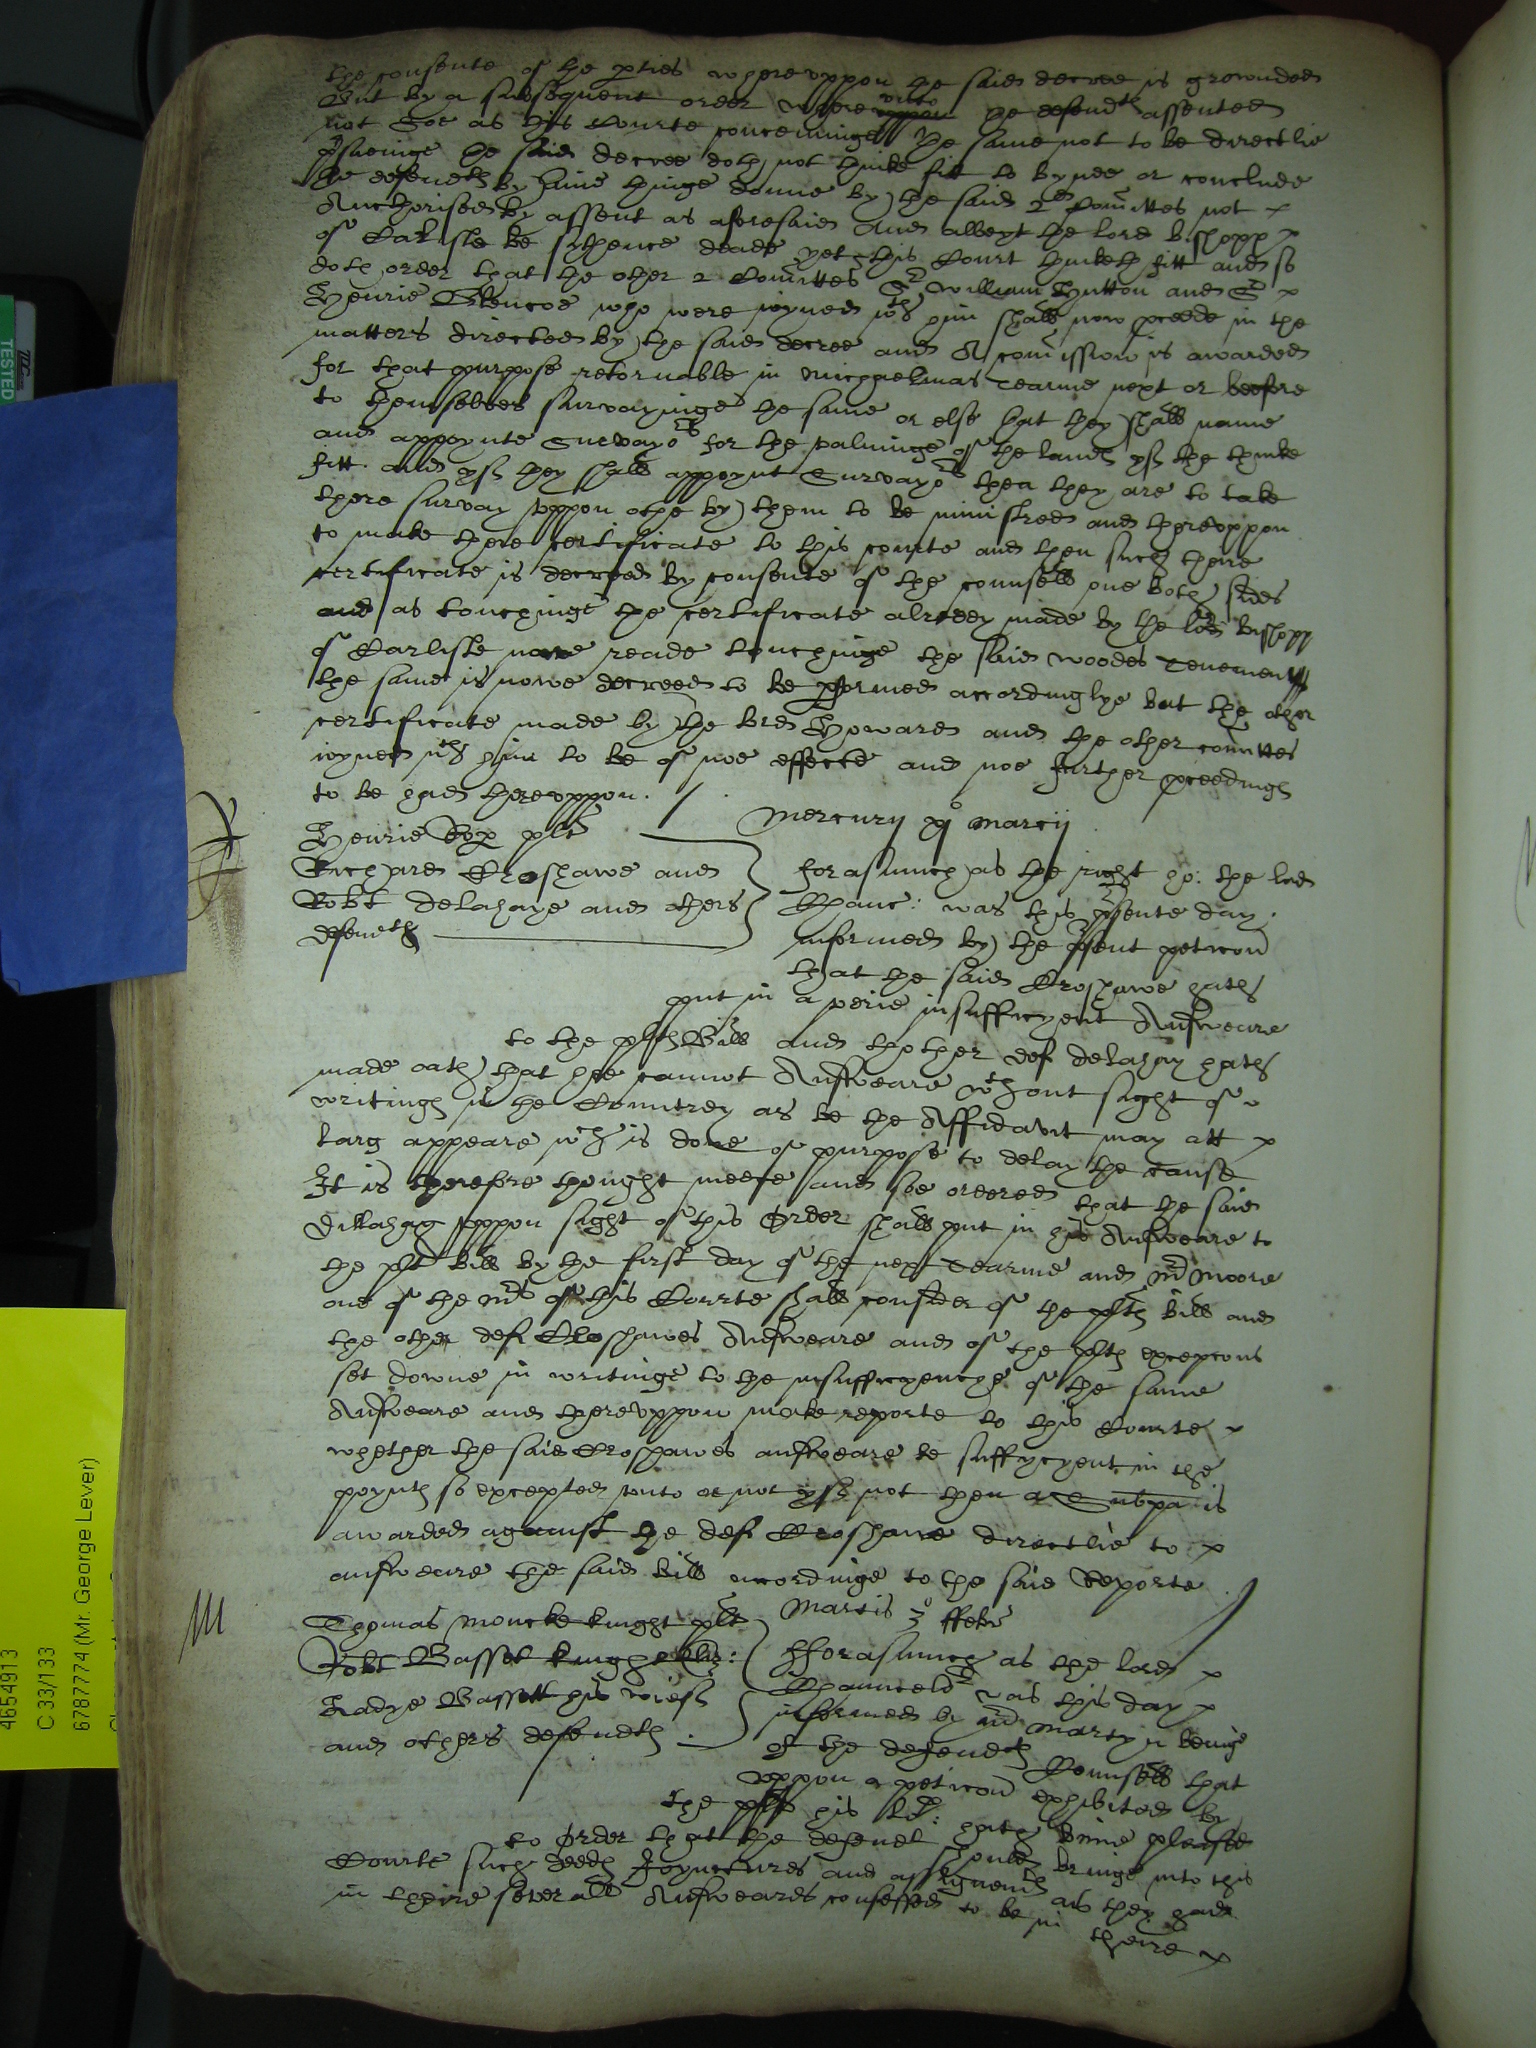 the consente of the p'ties whereuppon the said decree is grownded
But by a subsequent order whereunto the defend'th assented
not Soe as this Courte conceminge the same not to be directlie
p'sueinge the said decree doth not thinke fitt to bynde or conclude
the defendth by anie thinge donne by the said 2 Comittes not
Aucthorised by assent as aforesaid And albeyt the lord Bishopp
of Carlisle be sythence deade yet this Court thinketh fitt and so
doth order that the other 2 Comittes Sr William Hutton and Sr
Henrie who were ioyned wth him shall now p'ceede in the
matters directed by the said decree and A comission is awarded
for that purpose retornable in Michaelmas Tearme next or beefore
to themselves survayinge the same or else that they shall name
and appoynte Survayors for the valuinge of the landes yf the thinke
fitt. And yf they shall appoynt Survayors then they are to take
there survay uppon othe by them to be ministred and thereuppon
to make there certificate to this courte and then such theire
certificate is decreed by consente of the counsell one both sides
and as touchinge the certificate alredey made by the lord Bishopp
of Carlisle nowe reade touchinge the said woodes Tenements
the same is nowe decreed to be p'formed accordinglye but the other
certificate made by the lord Howard and the other comittes
ioyned wth him to be of noe effecte and noe further p'ceedings
to be had thereuppon.
Mercurij xj Marcij
Henrie plt
Richard Croshawe and
Robt Delahaye and others
defendtes
forasmuch as the right ho: the lord
Chanc: was this p'sente day
informed by the p'sent peticon
that the said Croshawe hath
put in a verie insufficyent Answeare
to the pltes Bill and thother def Delahay hath
made oath that hee cannot Answeare wthout sight of
writinges in the Countrey as by the Affidavit may att
larg appeare wch is done of purpose to delay the cause
It is therefore thought meete and soe ordered that the said
Dillahay uppon sight of this Order shall put in his Answeare to
the plt Bill by the first day of the next Tearme and Mr Moore
one of the Mrs of this Courte shall consider of the pltes bill and
the other def Croshawes Answeare and of the pltes excepcons
set downe in writinge to the insufficyencye of the same
Answeare and thereuppon make reporte to this Courte
whether the said Croshawes answeare be suffycyent in the
poyntes so excepted unto or not yf not then a Subpa is
awarded against the def Croshawe directlie to
answeare the said bill accordinge to the said Reporte
Martis 3o ffebr
Thomas Moncke knight plt
Robt Basset knight
Ladye Bassett his wief
and others defendtes
fforasmuch as the lord
Chauncelor was this day
informed by Mr Martyn beinge
of the defendtes Counsell that
uppon a peticon exhibited by
the plt his lp: hath binne pleased
to Order that the defendt should bringe into this
Courte such deedes Joynctures and assignemts as they have
in theire severall Answeares confessed to be in theire
4654913
C 33/133
6787774 (Mr. George Lever)
TESTED